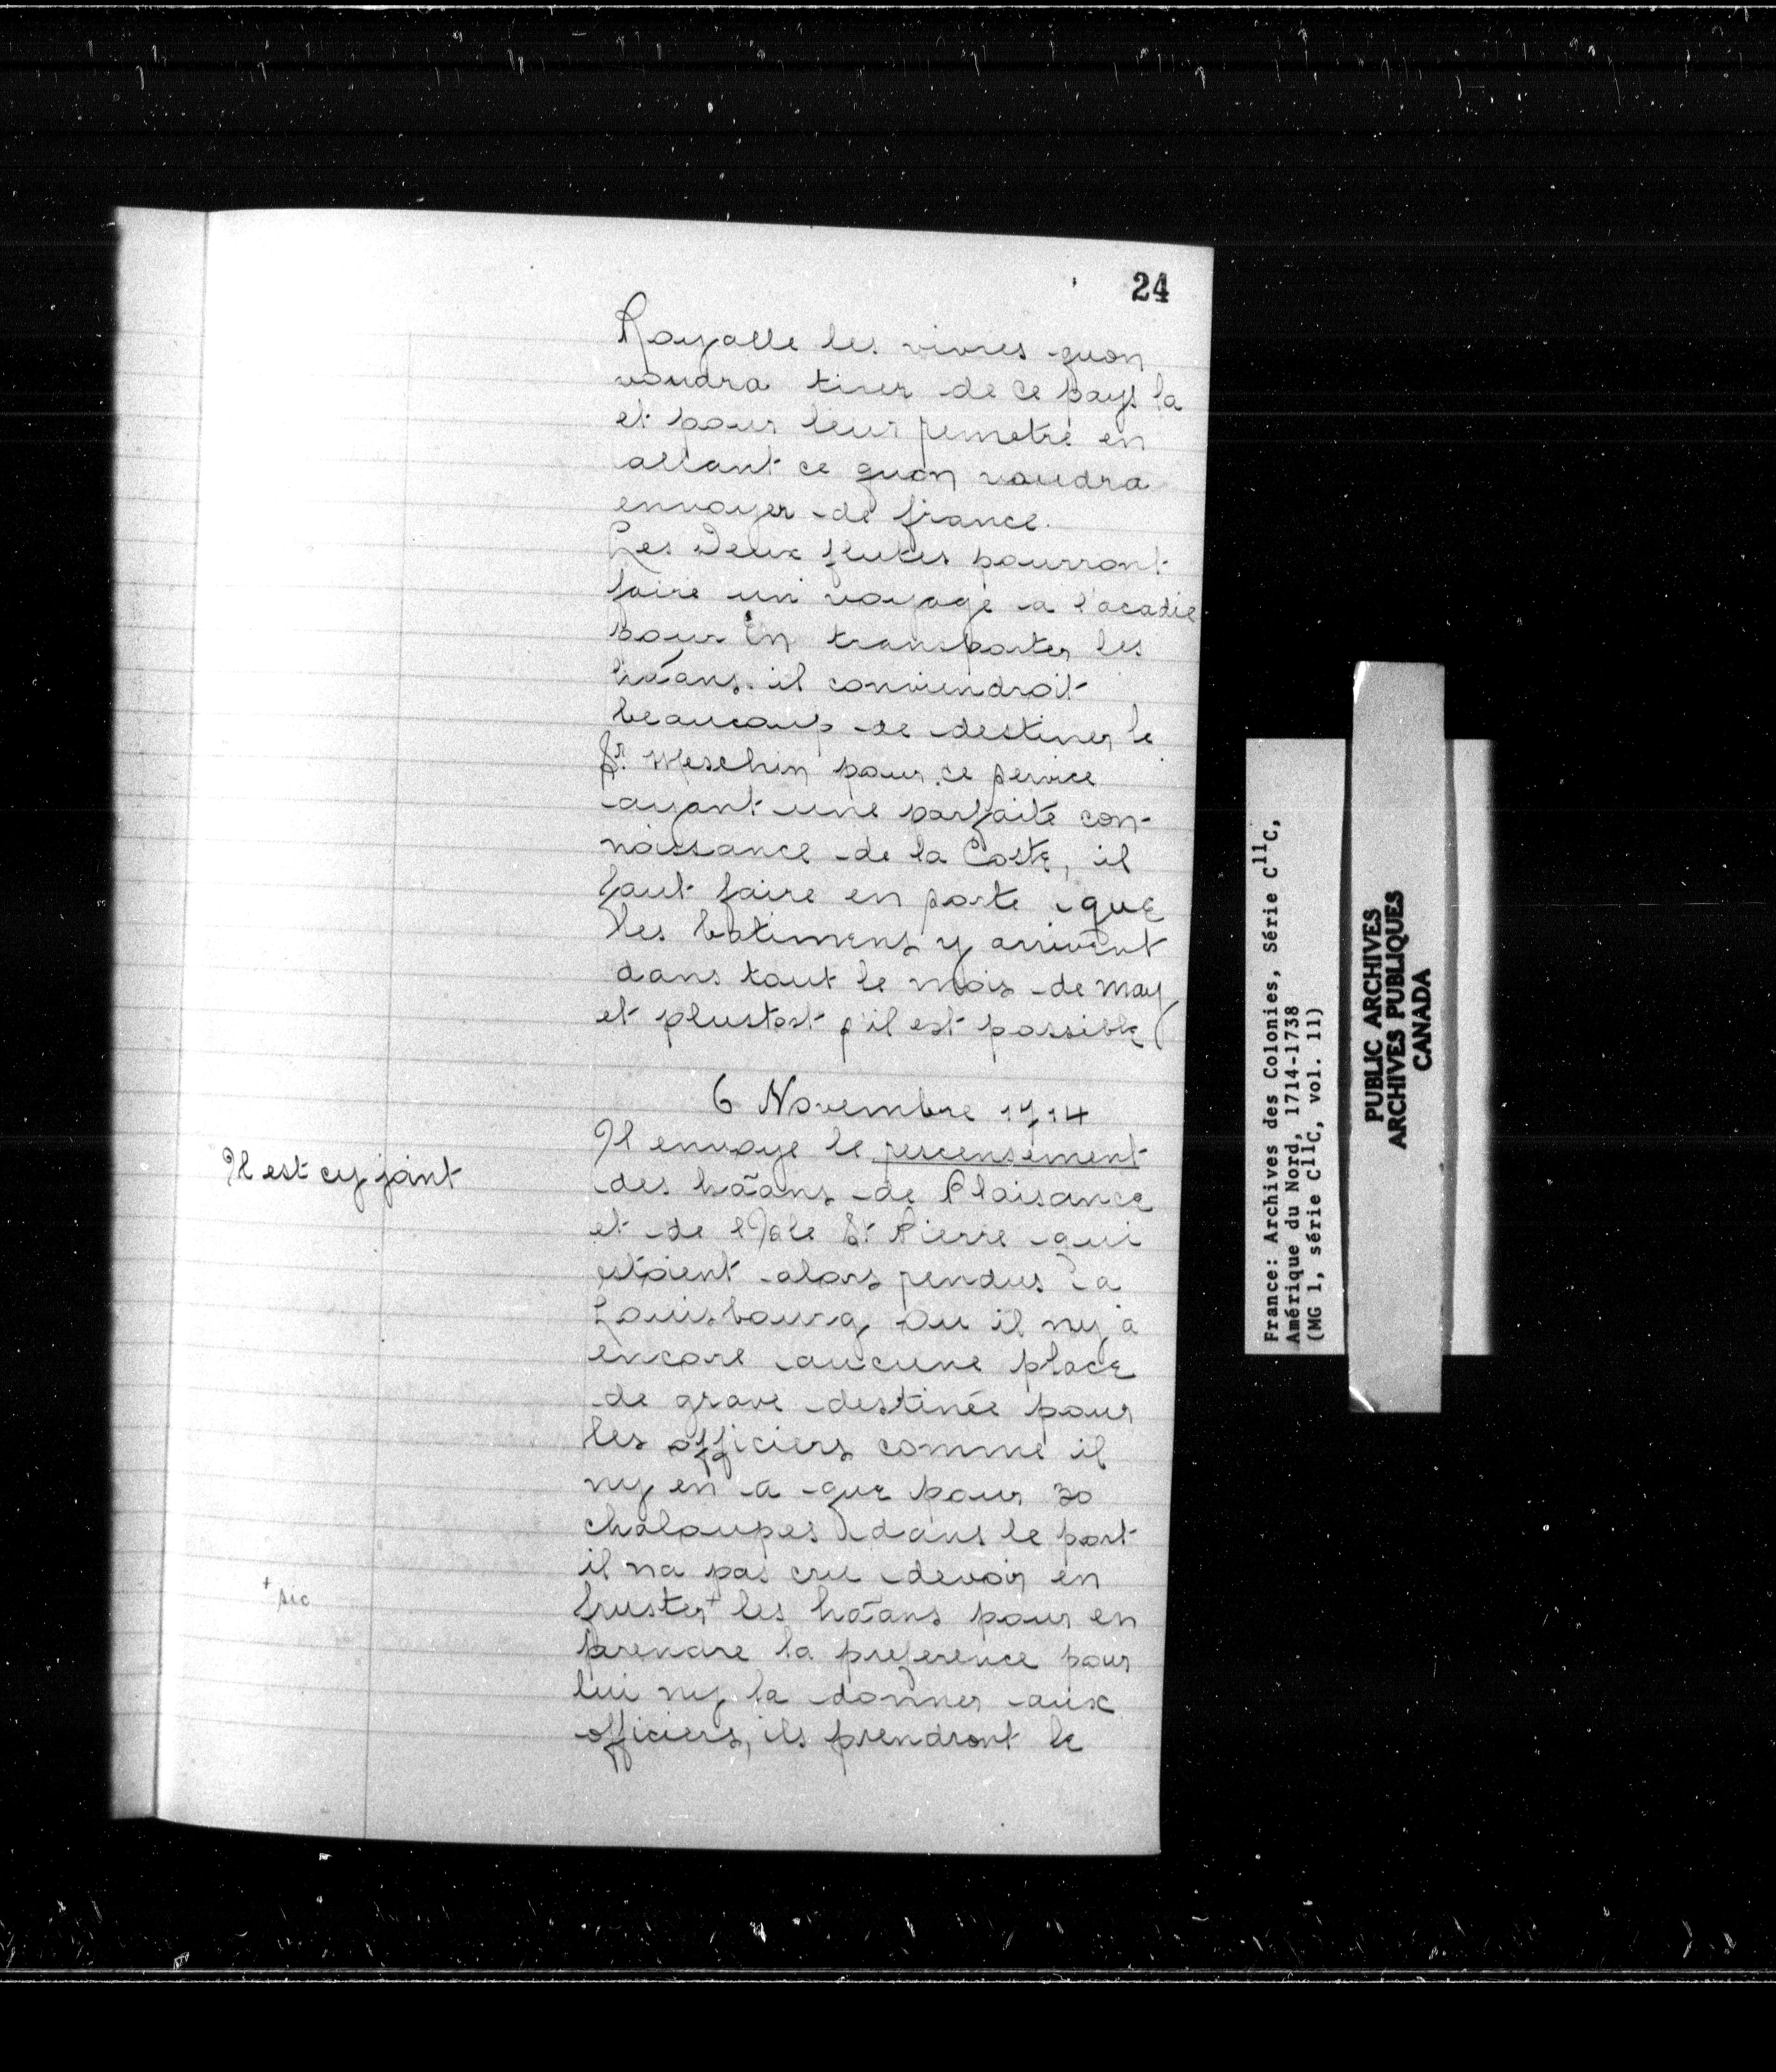 24
Royalle les vivres quon
voudra tirer de ce pays la
et pour leur remetre en
allant ce quon voudra
envoyer de france.
Les deux flutes pourront
faire un voyage a l'acadie
pour en transporter les
hãans. il conviendroit
beaucoup de destiner le
Sr. Meschin pour ce service
ayant une parfaite con-
noissance de la Coste, il
faut faire en sorte que
les batimens y arrivent
dans tout le mois de may
et plustost s'il est possible
6 Novembre 1714
Il envoye le rescensement
Il est cy joint
des hãans de Plaisance
et de l'Isle St Pierre qui
estoient alors rendus a
Louisbourg Ou il ny a
encore aucune place
de grave destinée pour
les officiers comme il
ny en a que pour 30
chaloupes dans le port
il na pas cru devoir en
+ sic
fruster+ les hãans pour en
prendre la preference pour
lui ny la donner aux
officiers, ils prendront le
France: Archives des Colonies, Série C11C,
Amérique du Nord, 1714-1738
(MG 1, série C11C, vol. 11)
PUBLIC ARCHIVES
ARCHIVES PUBLIQUES
CANADA